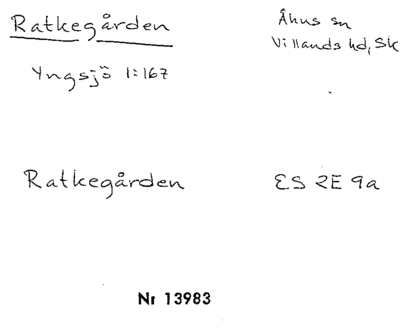 Ratkegården
Åhus sn
Villands hd, Sk
Yngsjö 1:167
Ratkegården
ES 2E 9a
Nr 13983